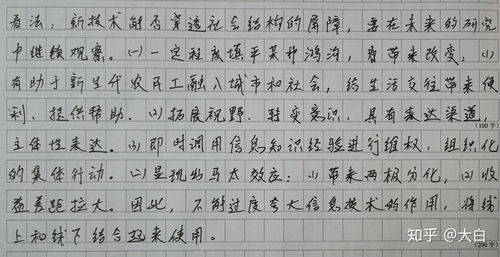 看法：新技术能否穿透社会结构的屏障，要在未来的研究
中继续观察。(一)一定程度填平某种鸿沟，带来改变：(1)
有助于新生代农民工融入城市和社会，给生活交往带来便
利、提供帮助。(2)拓展视野、转变意识，具有表达渠道，
(100字)
主体性表达。(3)即时调用信息知识经验进行维权，组织化
的集体行动。(二)呈现出马太效应：(1)带来两极分化，(2)收
益差距拉大。因此，不能过度夸大信息技术的作用，将线
上和线下结合起来使用。
(200字)
知乎 @大白